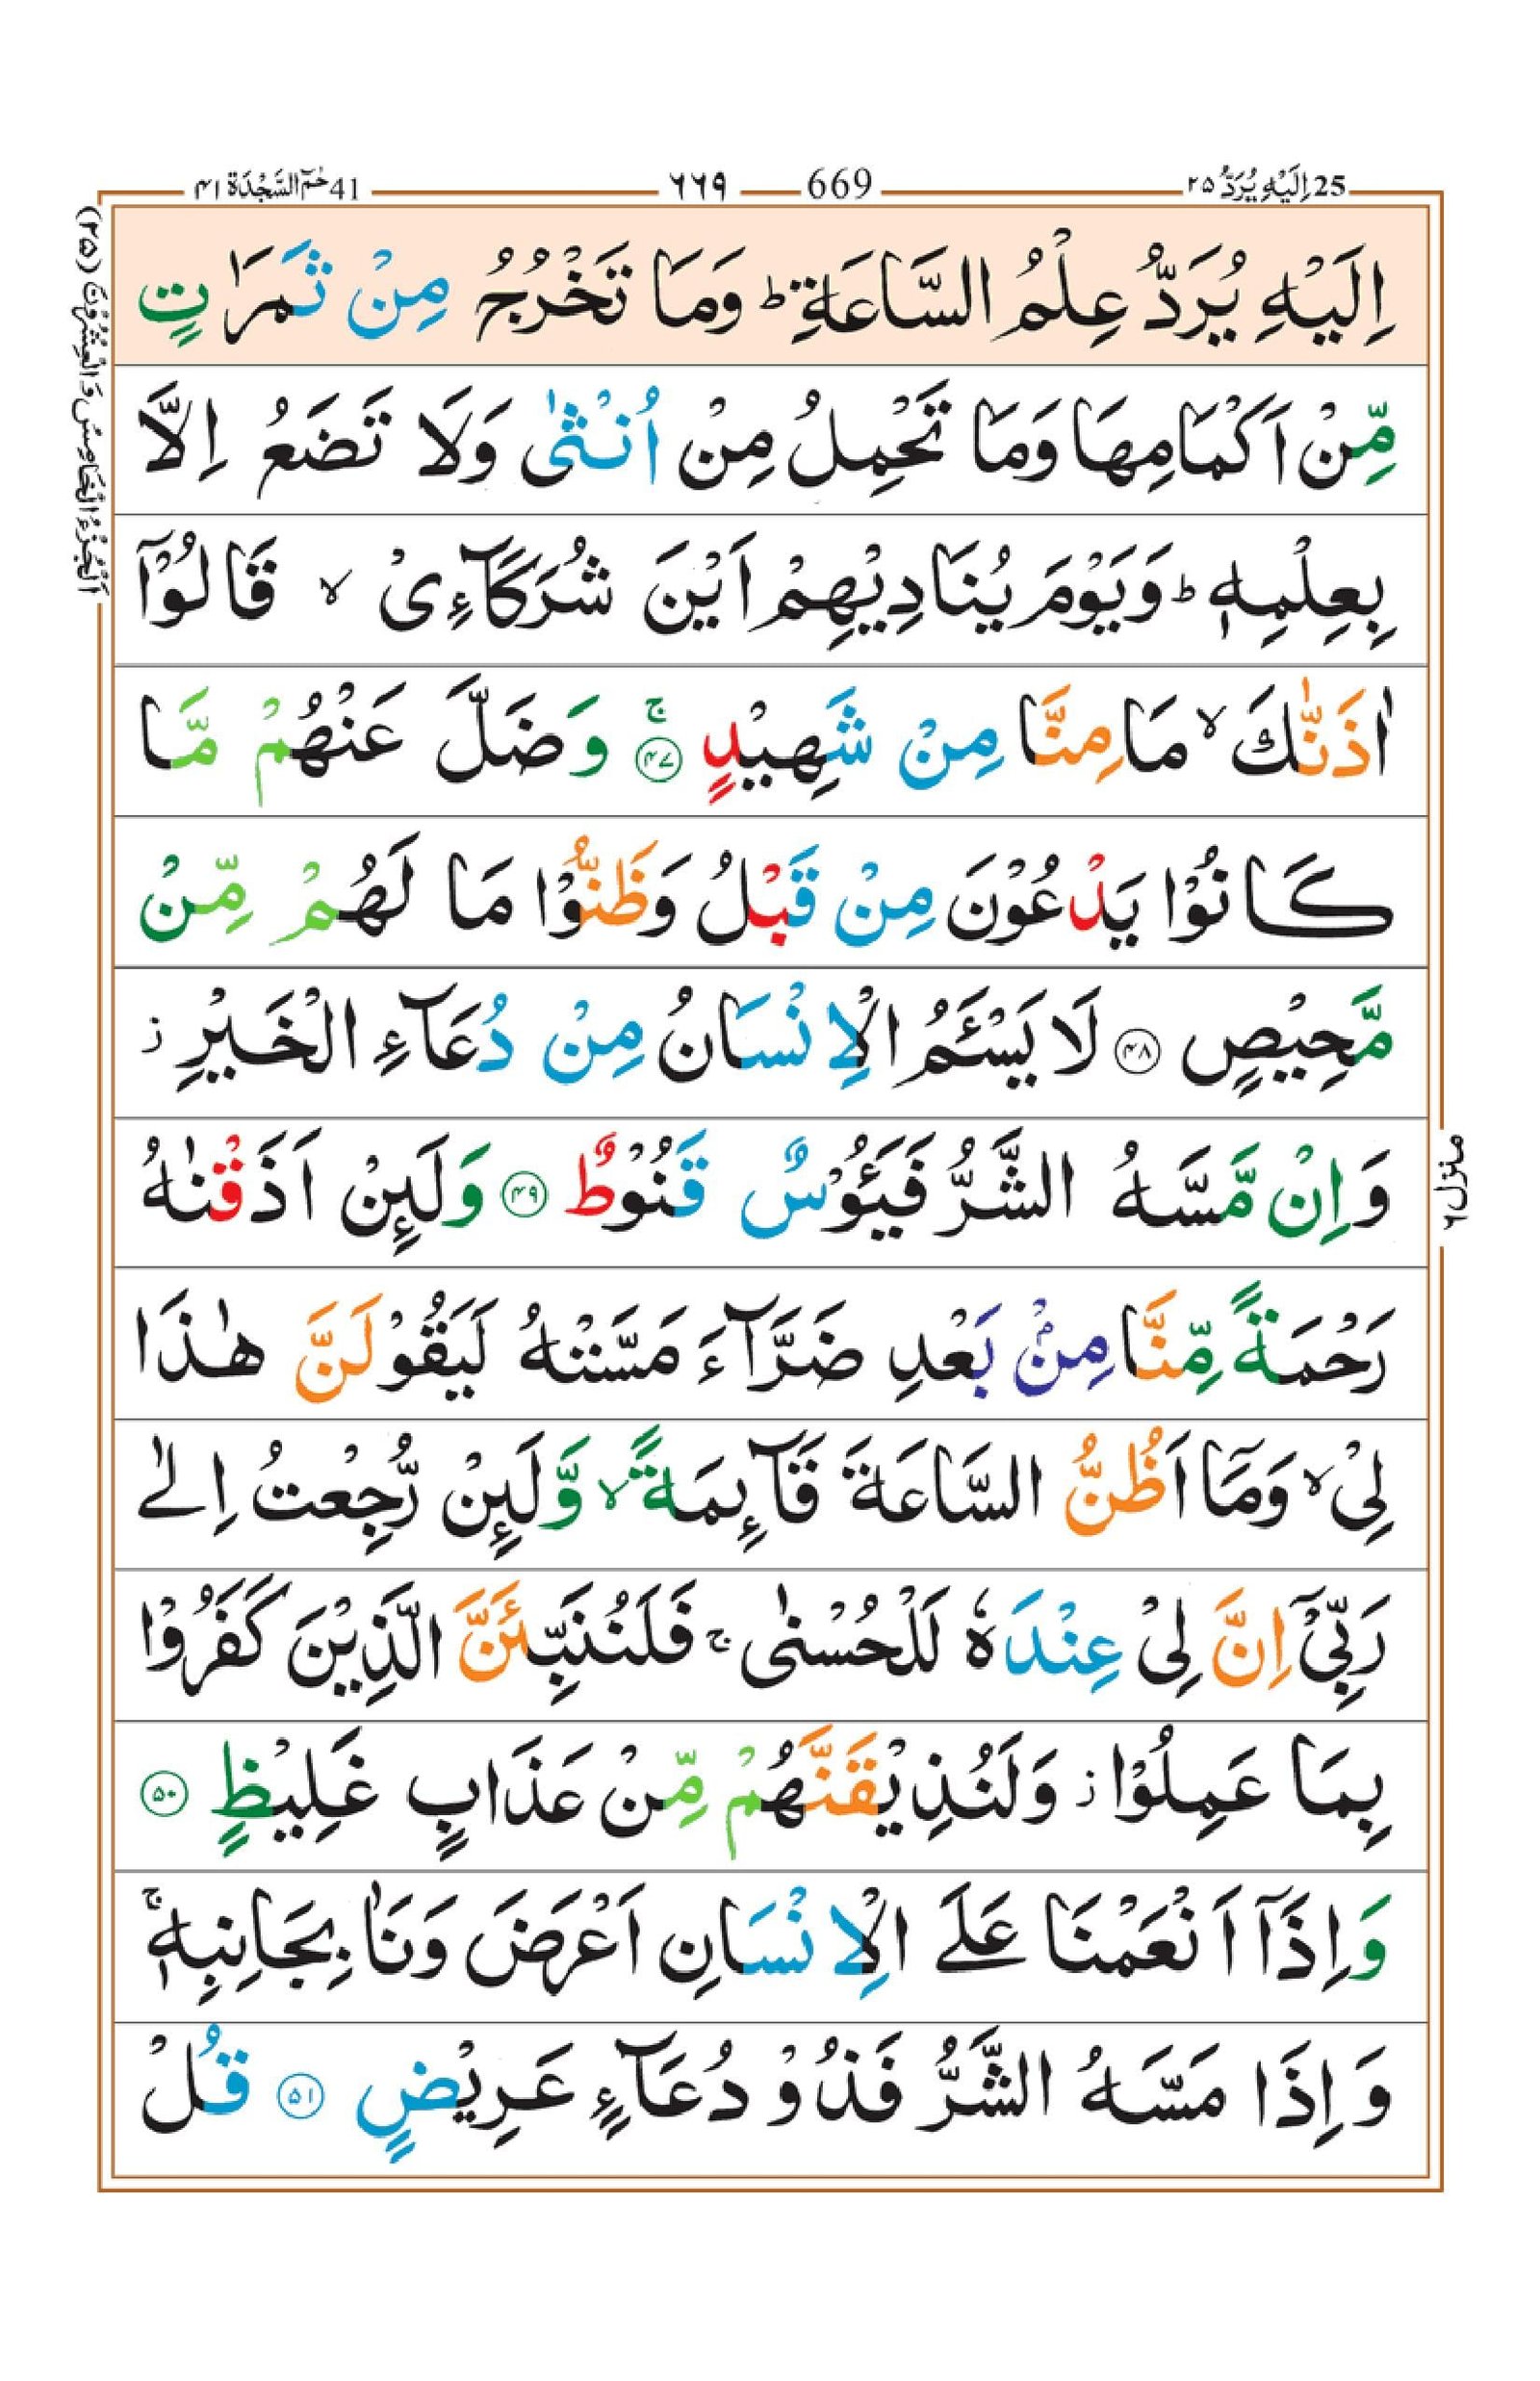 25 اِلَيْهِ يُرَدُّ ٢٥
669 ٦٦٩
41 حٰمٓ السَّجْدَة ٤١
اِلَيْهِ يُرَدُّ عِلْمُ السَّاعَةِ ؕ وَمَا تَخْرُجُ مِنْ ثَمَرٰتٍ
مِّنْ اَكْمَامِهَا وَمَا تَحْمِلُ مِنْ اُنْثٰى وَلَا تَضَعُ اِلَّا
بِعِلْمِهٖ ؕ وَيَوْمَ يُنَادِيْهِمْ اَيْنَ شُرَكَآءِىْ ۙ قَالُوْٓا
اٰذَنّٰكَ ۙ مَا مِنَّا مِنْ شَهِيْدٍ ۚ ﴿۴۷﴾ وَضَلَّ عَنْهُمْ مَّا
كَانُوْا يَدْعُوْنَ مِنْ قَبْلُ وَظَنُّوْا مَا لَهُمْ مِّنْ
مَّحِيْصٍ ﴿۴۸﴾ لَا يَسْـَٔمُ الْاِنْسَانُ مِنْ دُعَآءِ الْخَيْرِ ز
وَاِنْ مَّسَّهُ الشَّرُّ فَيَـُٔوْسٌ قَنُوْطٌ ﴿۴۹﴾ وَلَىِٕنْ اَذَقْنٰهُ
رَحْمَةً مِّنَّا مِنْۢ بَعْدِ ضَرَّآءَ مَسَّتْهُ لَيَقُوْلَنَّ هٰذَا
لِىْ ۙ وَمَآ اَظُنُّ السَّاعَةَ قَآىِٕمَةً ۙ وَّلَىِٕنْ رُّجِعْتُ اِلٰى
رَبِّىْٓ اِنَّ لِىْ عِنْدَهٗ لَلْحُسْنٰى ۚ فَلَنُنَبِّئَنَّ الَّذِيْنَ كَفَرُوْا
بِمَا عَمِلُوْا ز وَلَنُذِيْقَنَّهُمْ مِّنْ عَذَابٍ غَلِيْظٍ ﴿۵۰﴾
وَاِذَآ اَنْعَمْنَا عَلَى الْاِنْسَانِ اَعْرَضَ وَنَاٰ بِجَانِبِهٖ ۚ
وَاِذَا مَسَّهُ الشَّرُّ فَذُوْ دُعَآءٍ عَرِيْضٍ ﴿۵۱﴾ قُلْ
اَلْجُزْءُ الْخَامِسُ وَ الْعِشْرُوْنَ (٢٥)
منزل ٦